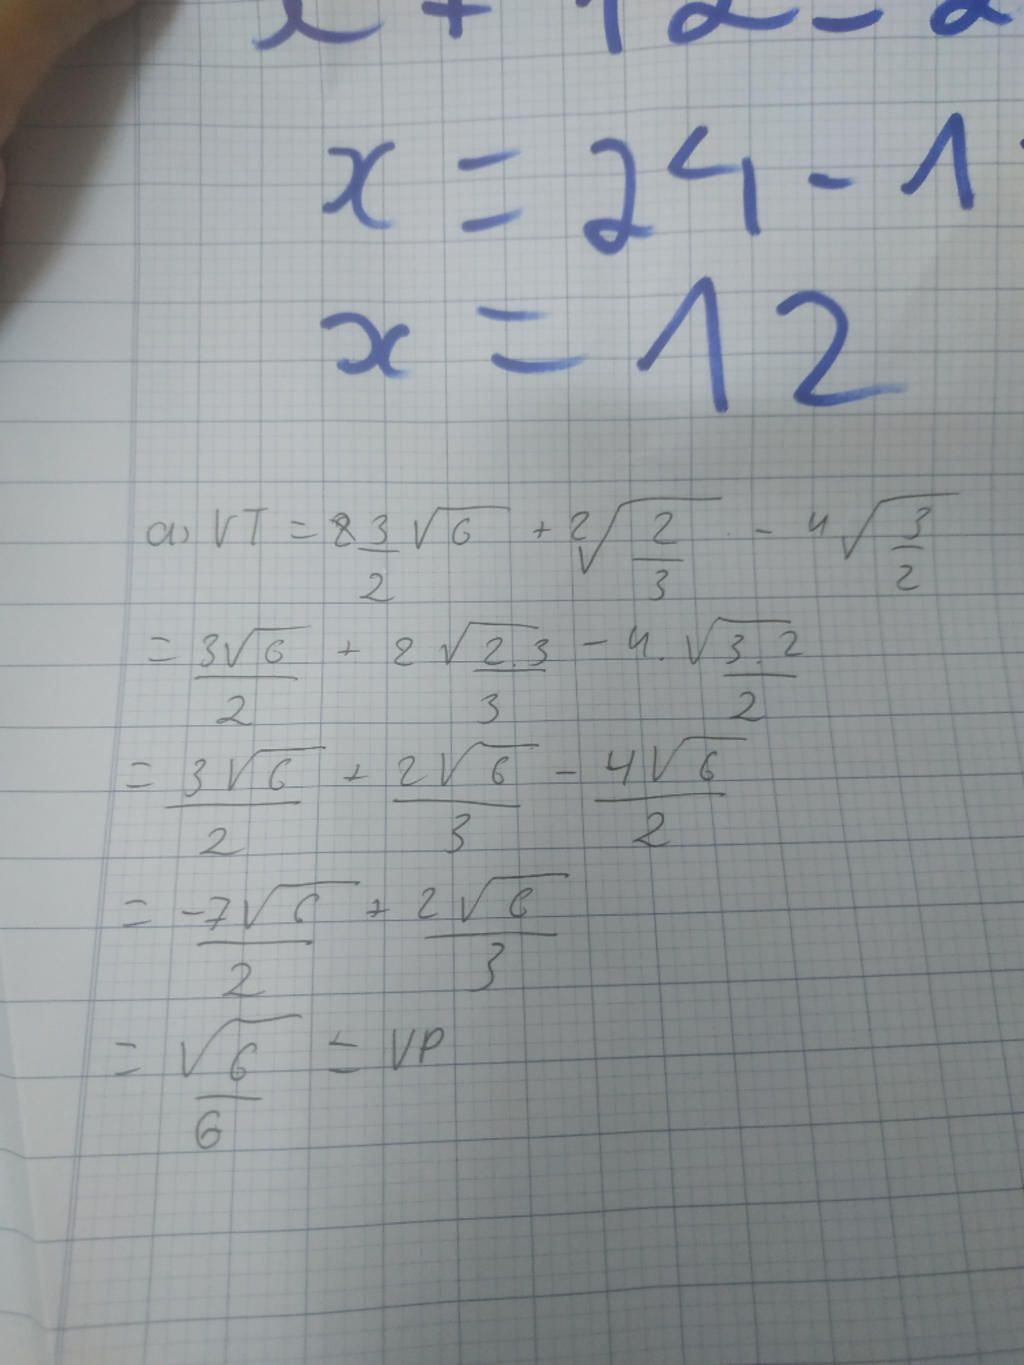 x = 24 - 1
x = 12
a) VT = 3/2 √6 + 2√(2/3) - 4√(3/2)
= 3√6/2 + 2 √2.3/3 - 4. √3.2/2
= 3√6/2 + 2√6/3 - 4√6/2
= -7√6/2 + 2√6/3
= √6/6 = VP